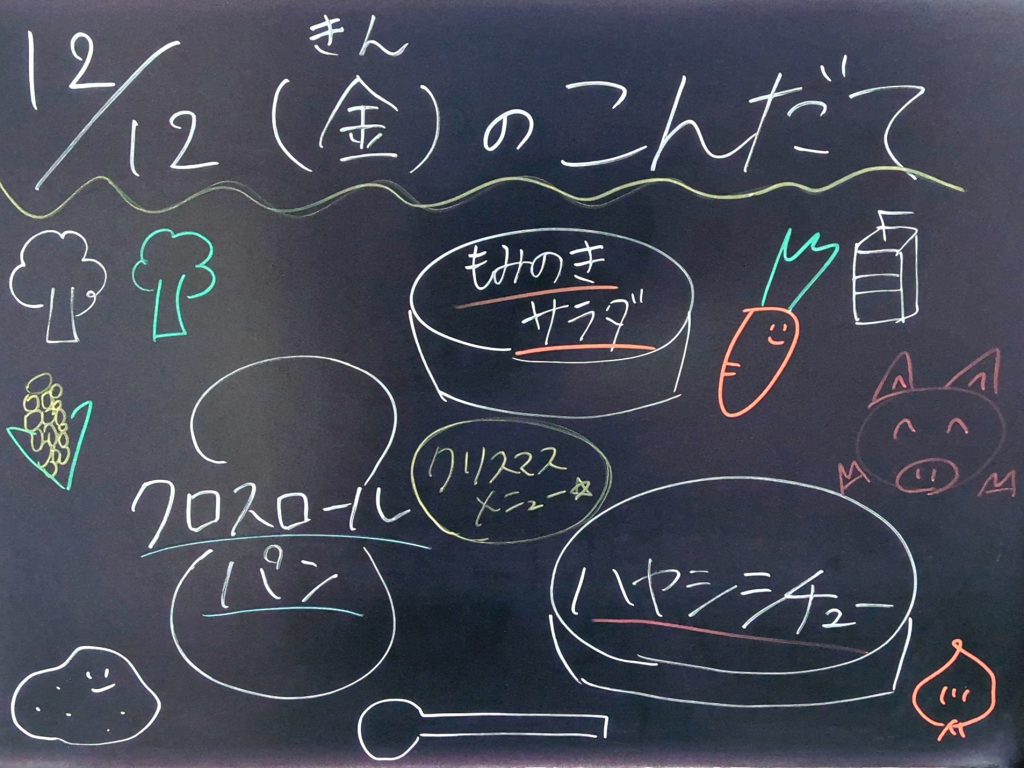 きん
12/12(金)のこんだて
もみのき
サラダ
クリスマス
メニュー☆
クロスロール
パン
ハヤシシチュー